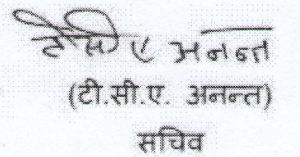 टी सी ए अनन्त
(टी.सी.ए. अनन्त)
सचिव